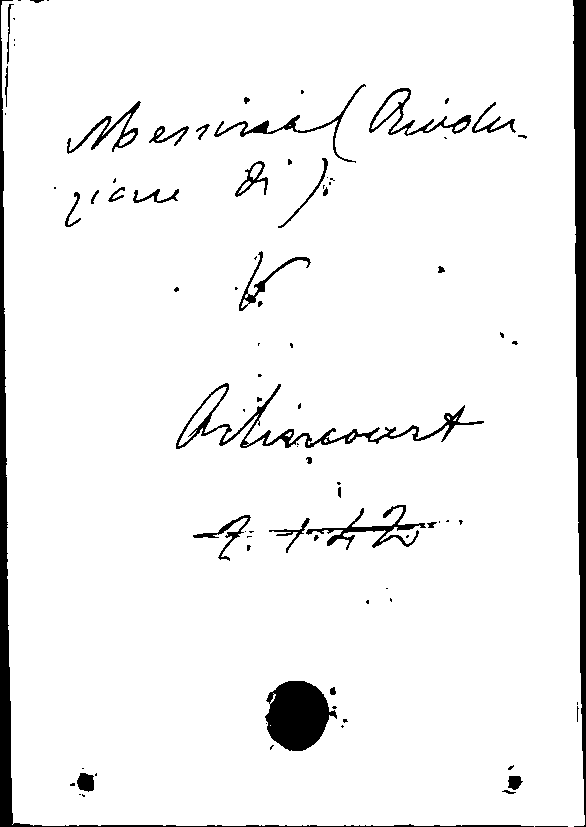 Messina (Rivolu-
zione di).
V.
Arlincourt
7. 1. 42